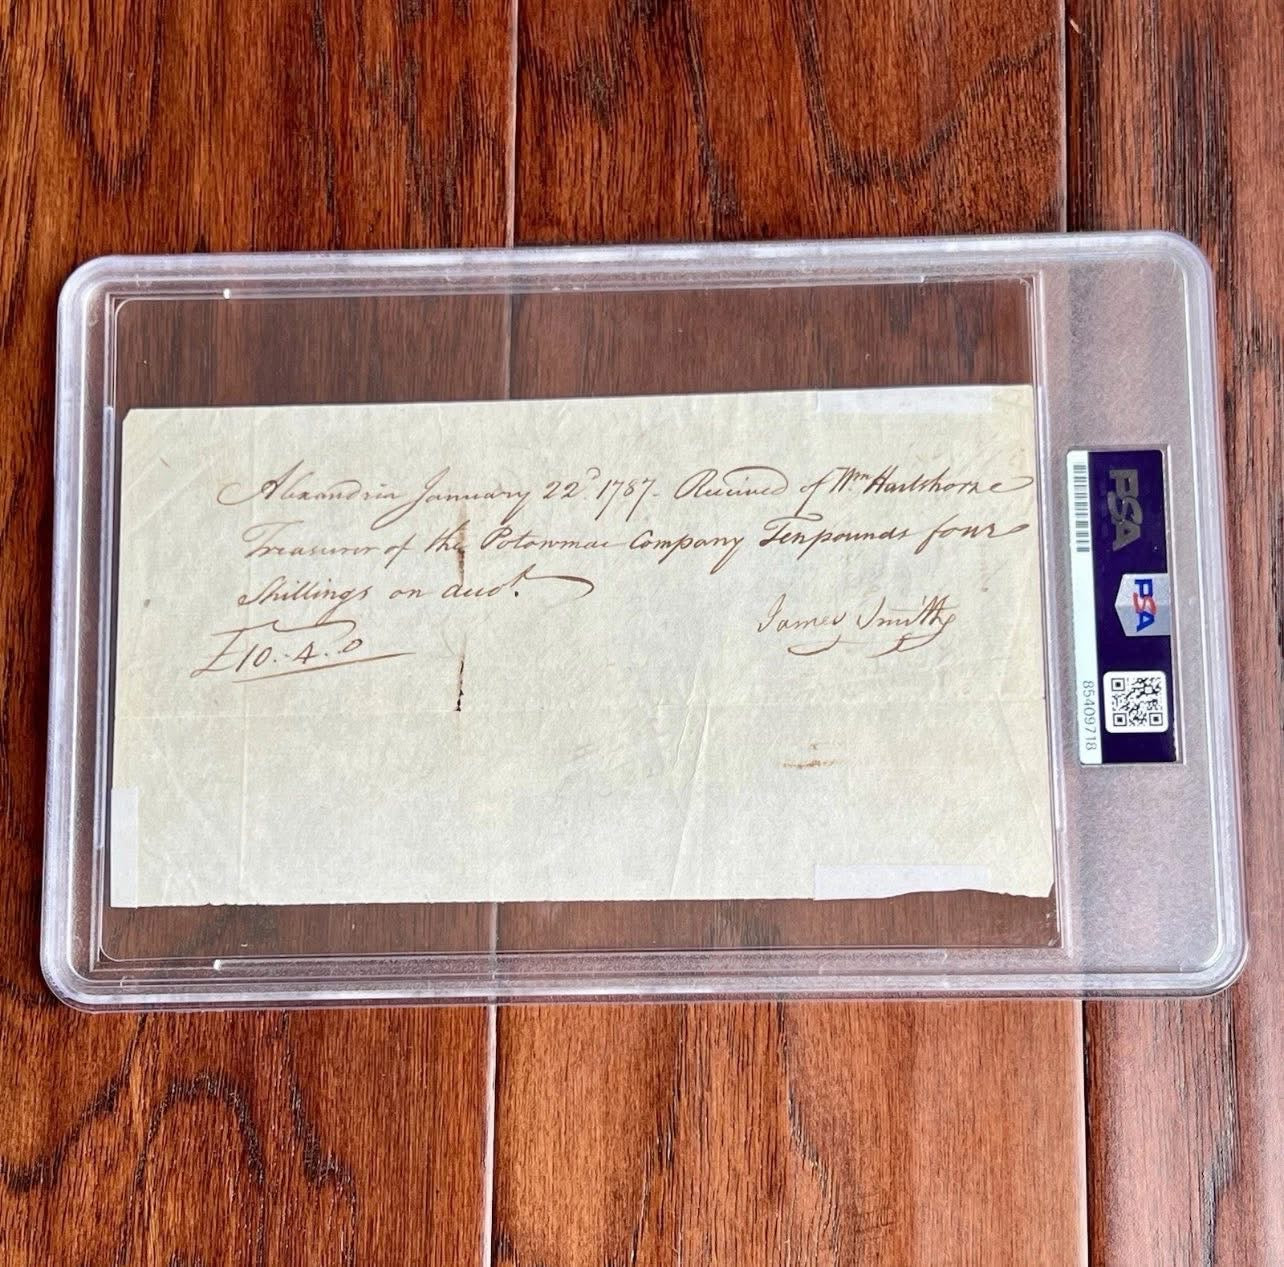 Alexandria January 22d. 1787. Received of Wm Hartshorne
Treasurer of the Potowmac Company Ten pounds four
Shillings on acco.t
James Smith
£10..4..0
PSA
PSA
85409718